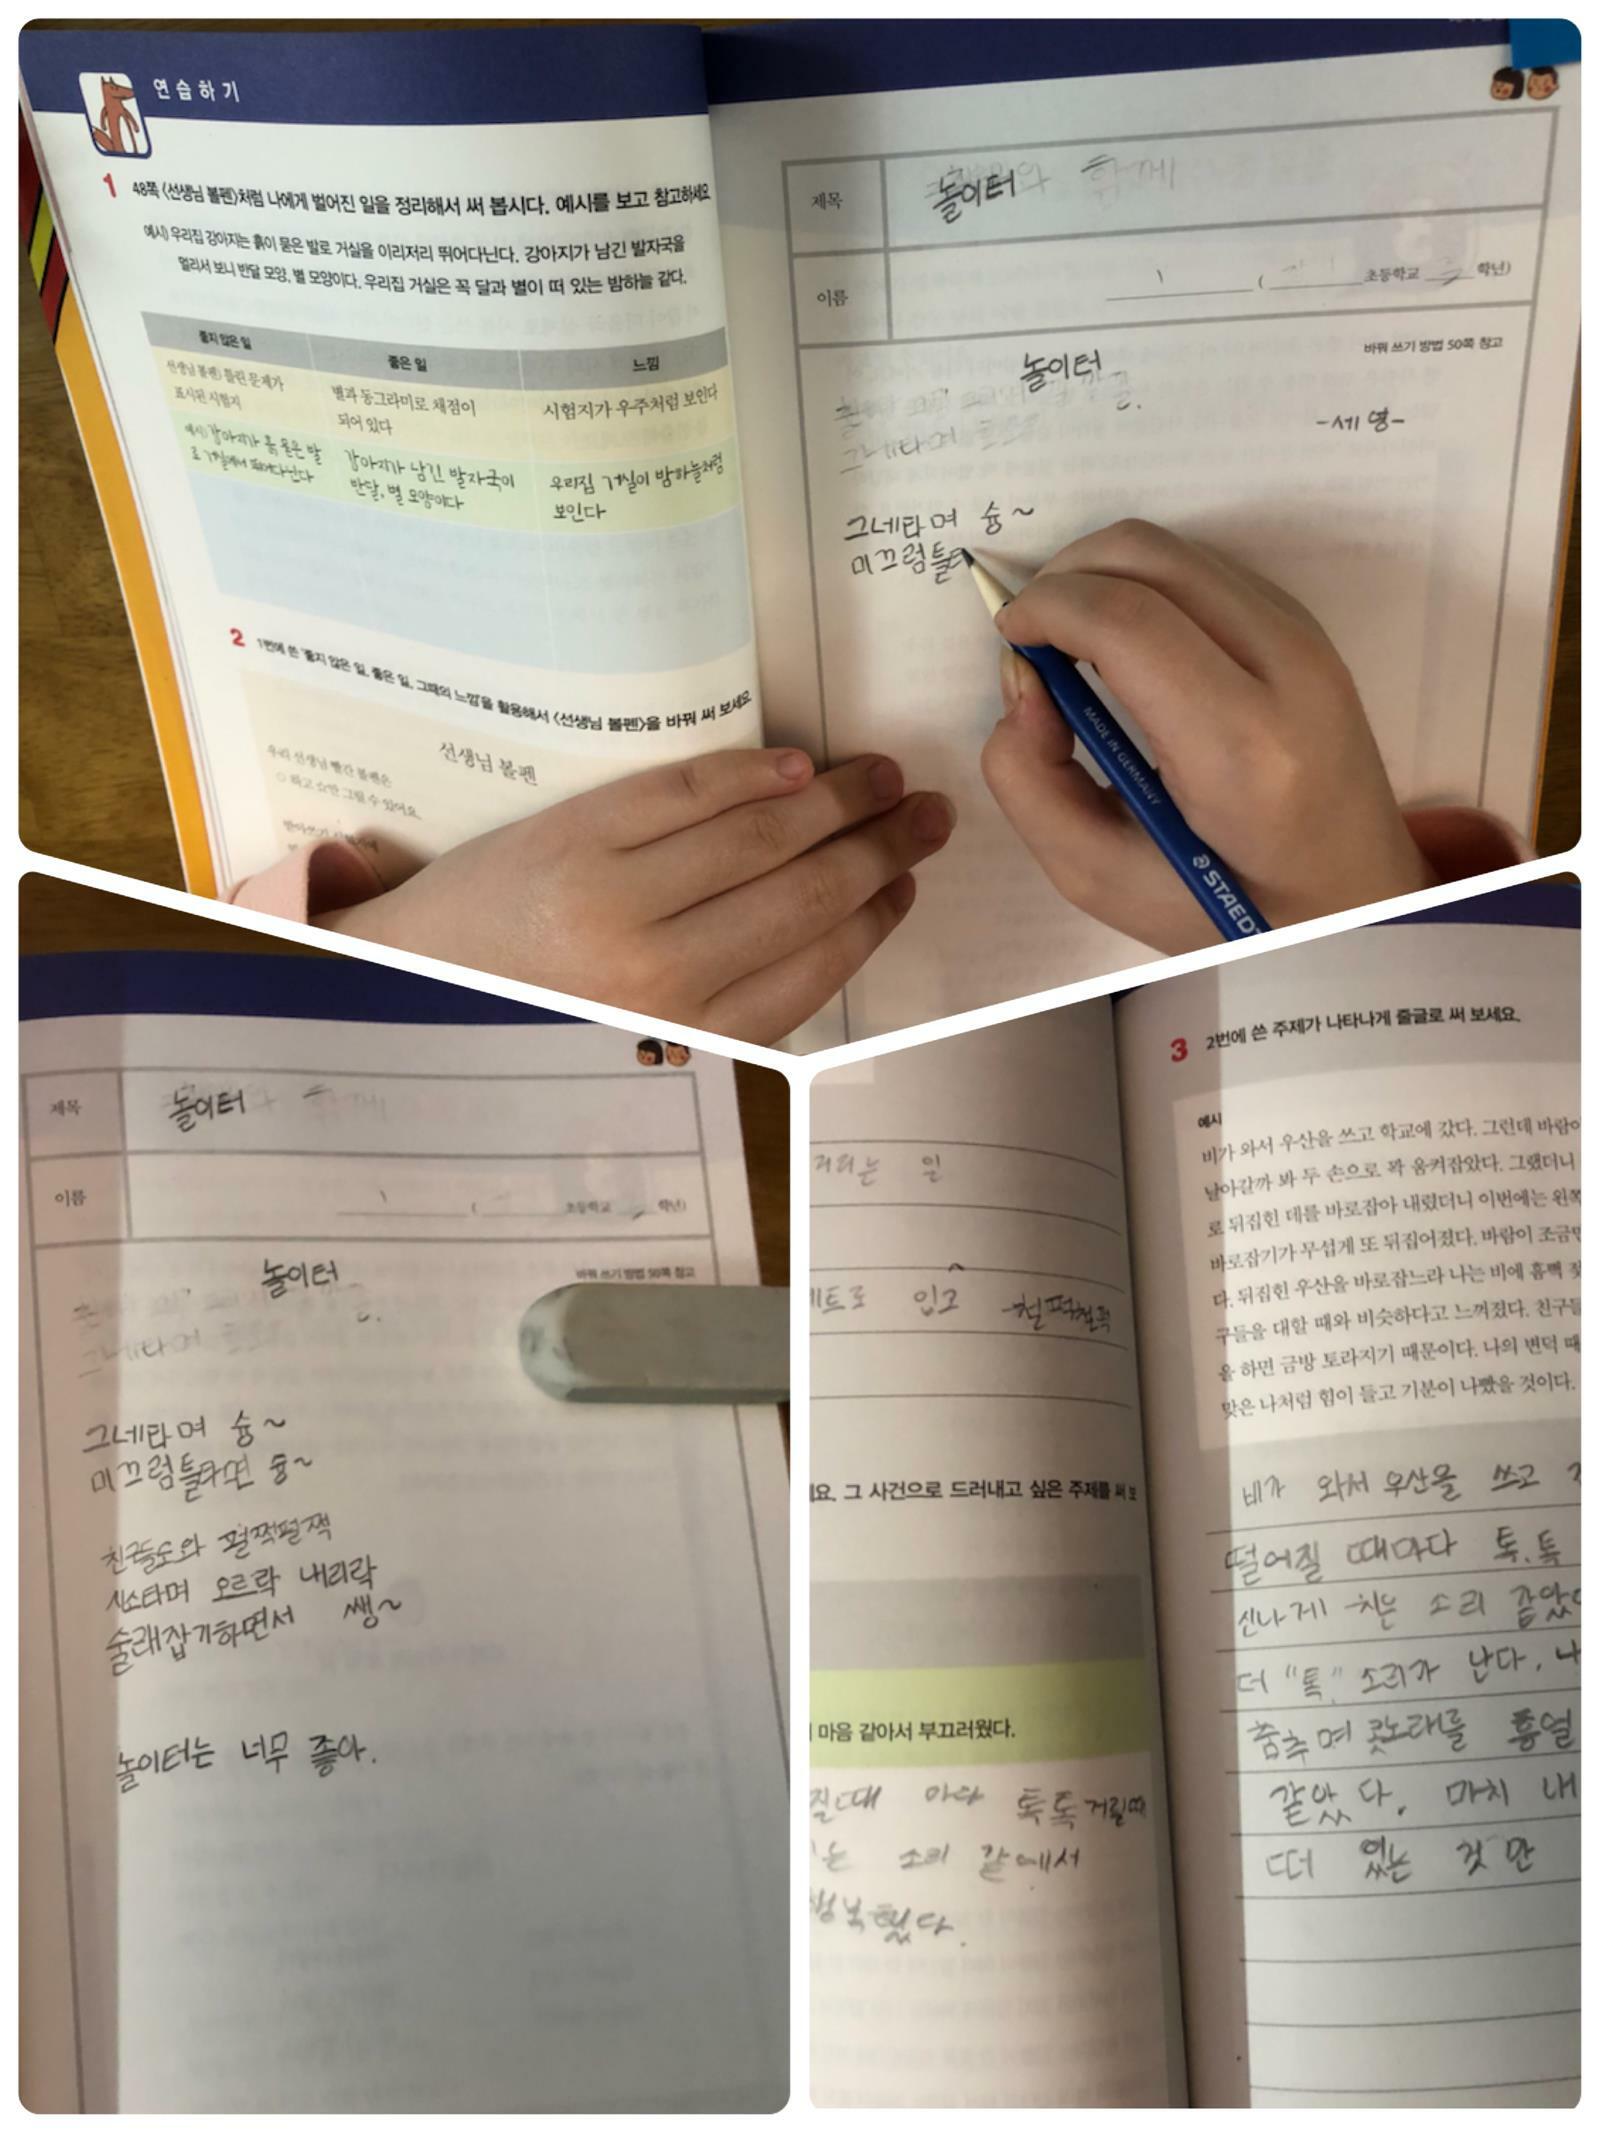 연습하기
1 48쪽 <선생님 볼펜>처럼 나에게 벌어진 일을 정리해서 써 봅시다. 예시를 보고 참고하세요
예시) 우리집 강아지는 흙이 묻은 발로 거실을 이리저리 뛰어다닌다. 강아지가 남긴 발자국을
멀리서 보니 반달 모양, 별 모양이다. 우리집 거실은 꼭 달과 별이 떠 있는 밤하늘 같다.
좋지 않은 일
좋은 일
느낌
선생님 볼펜) 틀린 문제가
표시된 시험지
별과 동그라미로 채점이
되어 있다
시험지가 우주처럼 보인다
예시) 강아지가 흙 묻은 발
로 거실에서 뛰어다닌다
강아지가 남긴 발자국이
반달, 별 모양이다
우리집 거실이 밤하늘처럼
보인다
2 1번에 쓴 '좋지 않은 일, 좋은 일, 그때의 느낌'을 활용해서 <선생님 볼펜>을 바꿔 써 보세요
선생님 볼펜
우리 선생님 빨간 볼펜은
○ 하고 ☆만 그릴 수 있어요.
제목
놀이터
함께
이름
초등학교
학년)
바꿔 쓰기 방법 50쪽 참고
놀이터
-세영-
그네타며
그네타며 슝~
미끄럼틀
MADE IN GERMANY
STAEDT
제목
놀이터
이름
초등학교
학년)
놀이터
바꿔 쓰기 방법 50쪽 참고
그네타며
그네타며 슝~
미끄럼틀타면 슝~
친구들도와 펄쩍펄쩍
시소타며 오르락 내리락
술래잡기하면서 쌩~
놀이터는 너무 좋아.
거리는 일
입고 철퍽철퍽
요. 그 사건으로 드러내고 싶은 주제를 써 보
마음 같아서 부끄러웠다.
질때 마다 톡톡거릴때
는 소리 같에서
행복했다.
3 2번에 쓴 주제가 나타나게 줄글로 써 보세요.
예시
비가 와서 우산을 쓰고 학교에 갔다. 그런데 바람이
날아갈까 봐 두 손으로 꽉 움켜잡았다. 그랬더니
로 뒤집힌 데를 바로잡아 내렸더니 이번에는 왼쪽
바로잡기가 무섭게 또 뒤집어졌다. 바람이 조금만
다. 뒤집힌 우산을 바로잡느라 나는 비에 흠뻑 젖
구들을 대할 때와 비슷하다고 느껴졌다. 친구들
을 하면 금방 토라지기 때문이다. 나의 변덕 때
맞은 나처럼 힘이 들고 기분이 나빴을 것이다.
비가 와서 우산을 쓰고
떨어질 때마다 톡.톡
신나게 치는 소리 같았
더 "톡" 소리가 난다. 나
춤추며 콧노래를 흥얼
같았다. 마치 내
떠 있는 것만